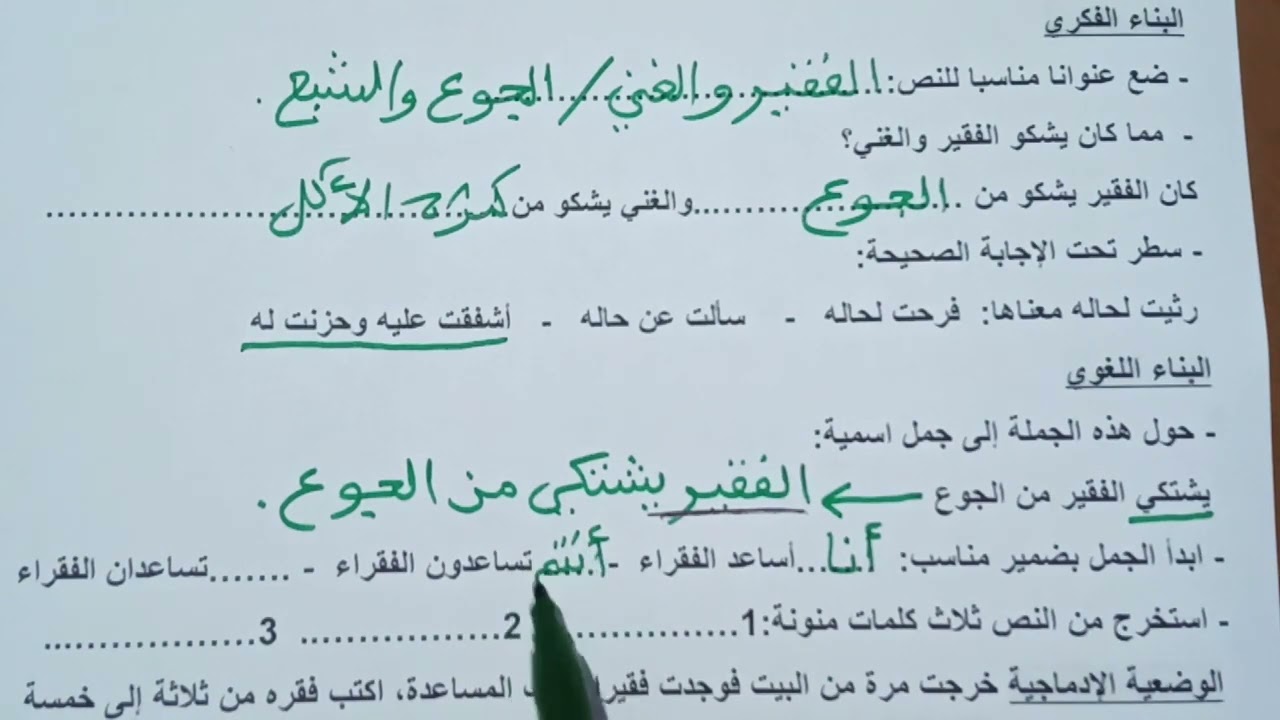 البناء الفكري
- ضع عنوانا مناسبا للنص: الفقير والغني / الجوع والشبع .
- مما كان يشكو الفقير والغني؟
كان الفقير يشكو من الجوع والغني يشكو من كثرة الأكل
- سطر تحت الإجابة الصحيحة:
رثيت لحاله معناها: فرحت لحاله - سألت عن حاله - أشفقت عليه وحزنت له
البناء اللغوي
- حول هذه الجملة إلى جمل اسمية:
يشتكي الفقير من الجوع ← الفقير يشتكي من الجوع .
- ابدأ الجمل بضمير مناسب: أنا...أساعد الفقراء - أنتم تساعدون الفقراء - .......تساعدان الفقراء
- استخرج من النص ثلاث كلمات منونة: 1................ 2................. 3..................
الوضعية الإدماجية خرجت مرة من البيت فوجدت فقيرا المساعدة، اكتب فقره من ثلاثة إلى خمسة